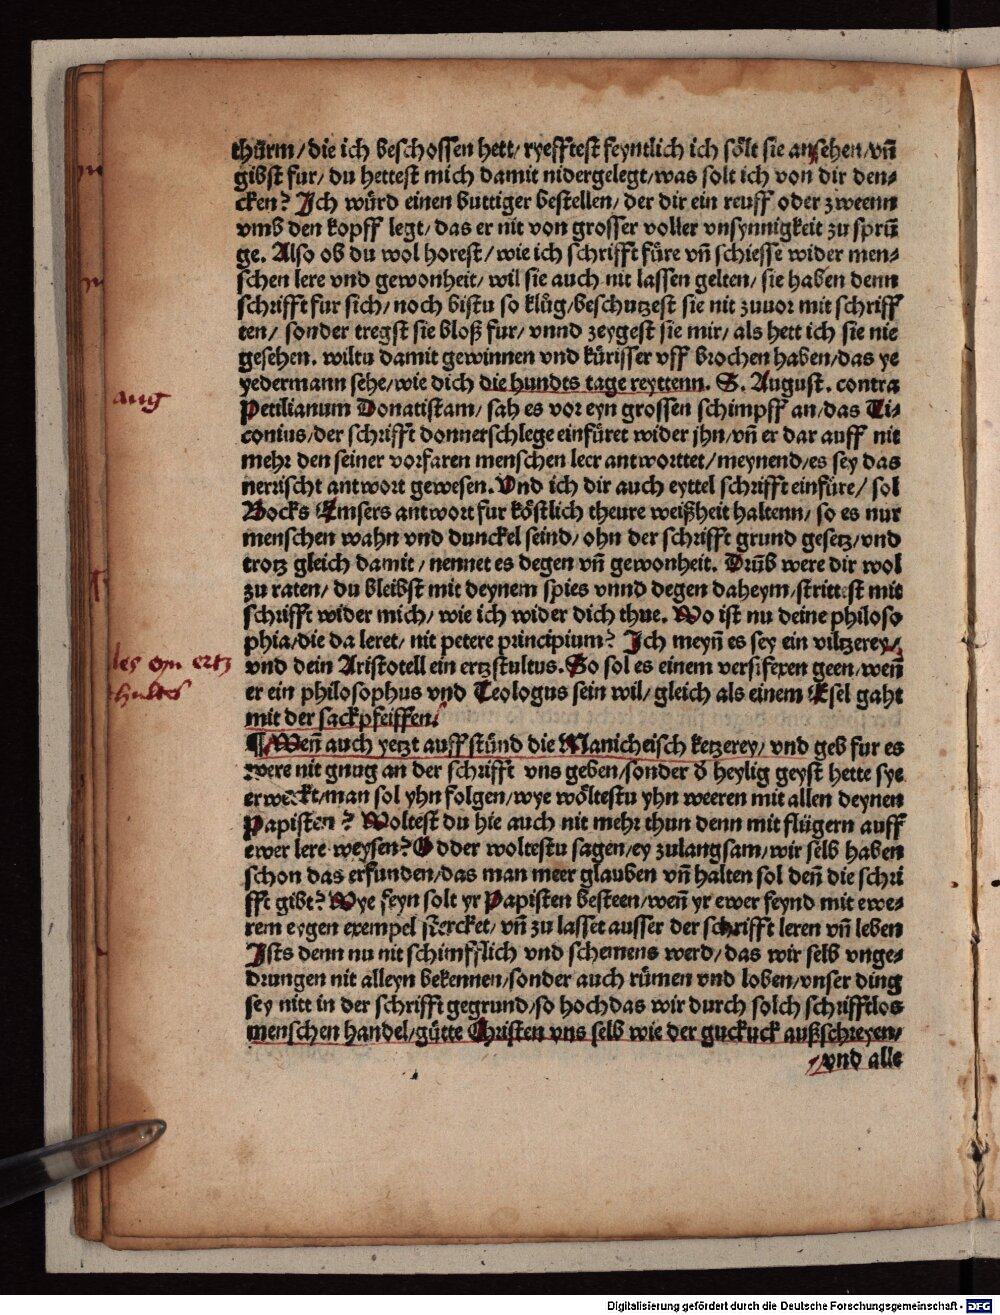 thürm/ die ich beschossen hett/ ryefftest feyntlich ich sölt sie ansehen/vñ
gibst fur/ du hettest mich damit nidergelegt/was solt ich von dir den⸗
cken? Ich würd einen buttiger bestellen/ der dir ein reuff oder zweenn
vmb den kopff legt/ das er nit von grosser voller vnsynnigkeit zu sprü
ge. Also ob du wol horest/ wie ich schrifft füre vñ schiesse wider men⸗
schen lere vnd gewonheit/ wil sie auch nit lassen gelten/ sie haben denn
schrifft fur sich/ noch bistu so klüg/beschutzest sie nit zuuor mit schriff
ten/ sonder tregst sie bloß fur/ vnnd zeygest sie mir/ als hett ich sie nie
gesehen. wiltu damit gewinnen vnd kürisser vff brochen haben/das ye
yedermann sehe/wie dich die hundts tage reyttenn. S. August. contra
aug
Petilianum Donatistam/ sah es vor eyn grossen schimpff an/das Ti⸗
conius/der schrifft donnerschlege einfüret wider jhn/vñ er dar auff nit
mehr den seiner vorfaren menschen leer antworttet/meynend/es sey das
nerrischt antwort gewesen. Vnd ich dir auch eyttel schrifft einfüre/ sol
Bocks Emsers antwort fur köstlich theure weißheit haltenn/ so es nur
menschen wahn vnd dunckel seind/ ohn der schrifft grund gesetz/vnd
trotz gleich damit/ nennet es degen vñ gewonheit. Drüb were dir wol
zu raten/ du bleibst mit deynem spies vnnd degen daheym/strittest mit
schrifft wider mich/ wie ich wider dich thue. Wo ist nu deine philoso
phia/die da leret/ nit petere principium? Ich meyñ es sey ein viltzerey/
les eyn ertz
vnd dein Aristotell ein ertzstultus. So sol es einem versifexen geen/weñ
er ein philosophus vnd Teologus sein wil/ gleich als einem Esel gaht
mit der sackpfeiffen.
¶ Weñ auch yetzt auff stünd die Manicheisch ketzerey/ vnd geb fur es
were nit gnug an der schrifft vns geben/sonder d̕ heylig geyst hette sye
erweckt/man sol yhn folgen/wye wöltestu yhn weeren mit allen deynen
Papisten? Woltest du hie auch nit mehr thun denn mit flügern auff
ewer lere weysen? Odder woltestu sagen/ey zulangsam/wir selb haben
schon das erfunden/das man meer glauben vñ halten sol deñ die schri
fft gibt? Wye feyn solt yr Papisten besteen/weñ yr ewer feynd mit ewe⸗
rem eygen exempel stercket/ vñ zu lasset ausser der schrifft leren vñ leben
Ists denn nu nit schimpfflich vnd schemens werd/das wir selb vnge⸗
drungen nit alleyn bekennen/sonder auch rümen vnd loben/vnser ding
sey nitt in der schrifft gegrund/so hoch das wir durch solch schrifftlos
menschen handel/gütte Christen vns selb wie der guckuck außschreyen/
vnd alle
Digitalisierung gefördert durch die Deutsche Forschungsgemeinschaft - DFG